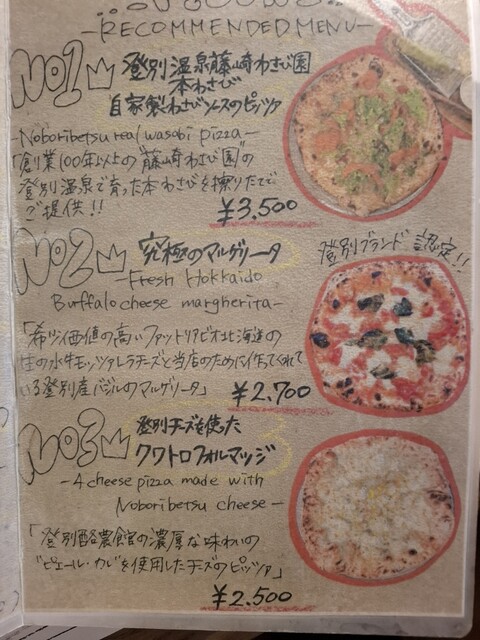 -RECOMMENDED MENU-
No1
登別温泉藤崎わさび園
本わさび
自家製わさびソースのピッツァ
-Noboribetsu real wasabi pizza-
「創業100年以上の"藤崎わさび園"の
登別温泉で育った本わさびを擦りたてで
ご提供!!
¥3,500
No2
究極のマルゲリータ
登別ブランド認定!!
-Fresh Hokkaido
Buffalo cheese margherita-
「希少価値の高いファットリアビオ北海道の
生の水牛モッツァレラチーズと当店のために作ってくれて
いる登別産バジルのマルゲリータ」
¥2,700
No3
登別チーズを使った
クワトロフォルマッジ
-4 cheese pizza made with
Noboribetsu cheese-
「登別酪農館の濃厚な味わいの
"ピエール・カレ"を使用したチーズのピッツァ」
¥2,500